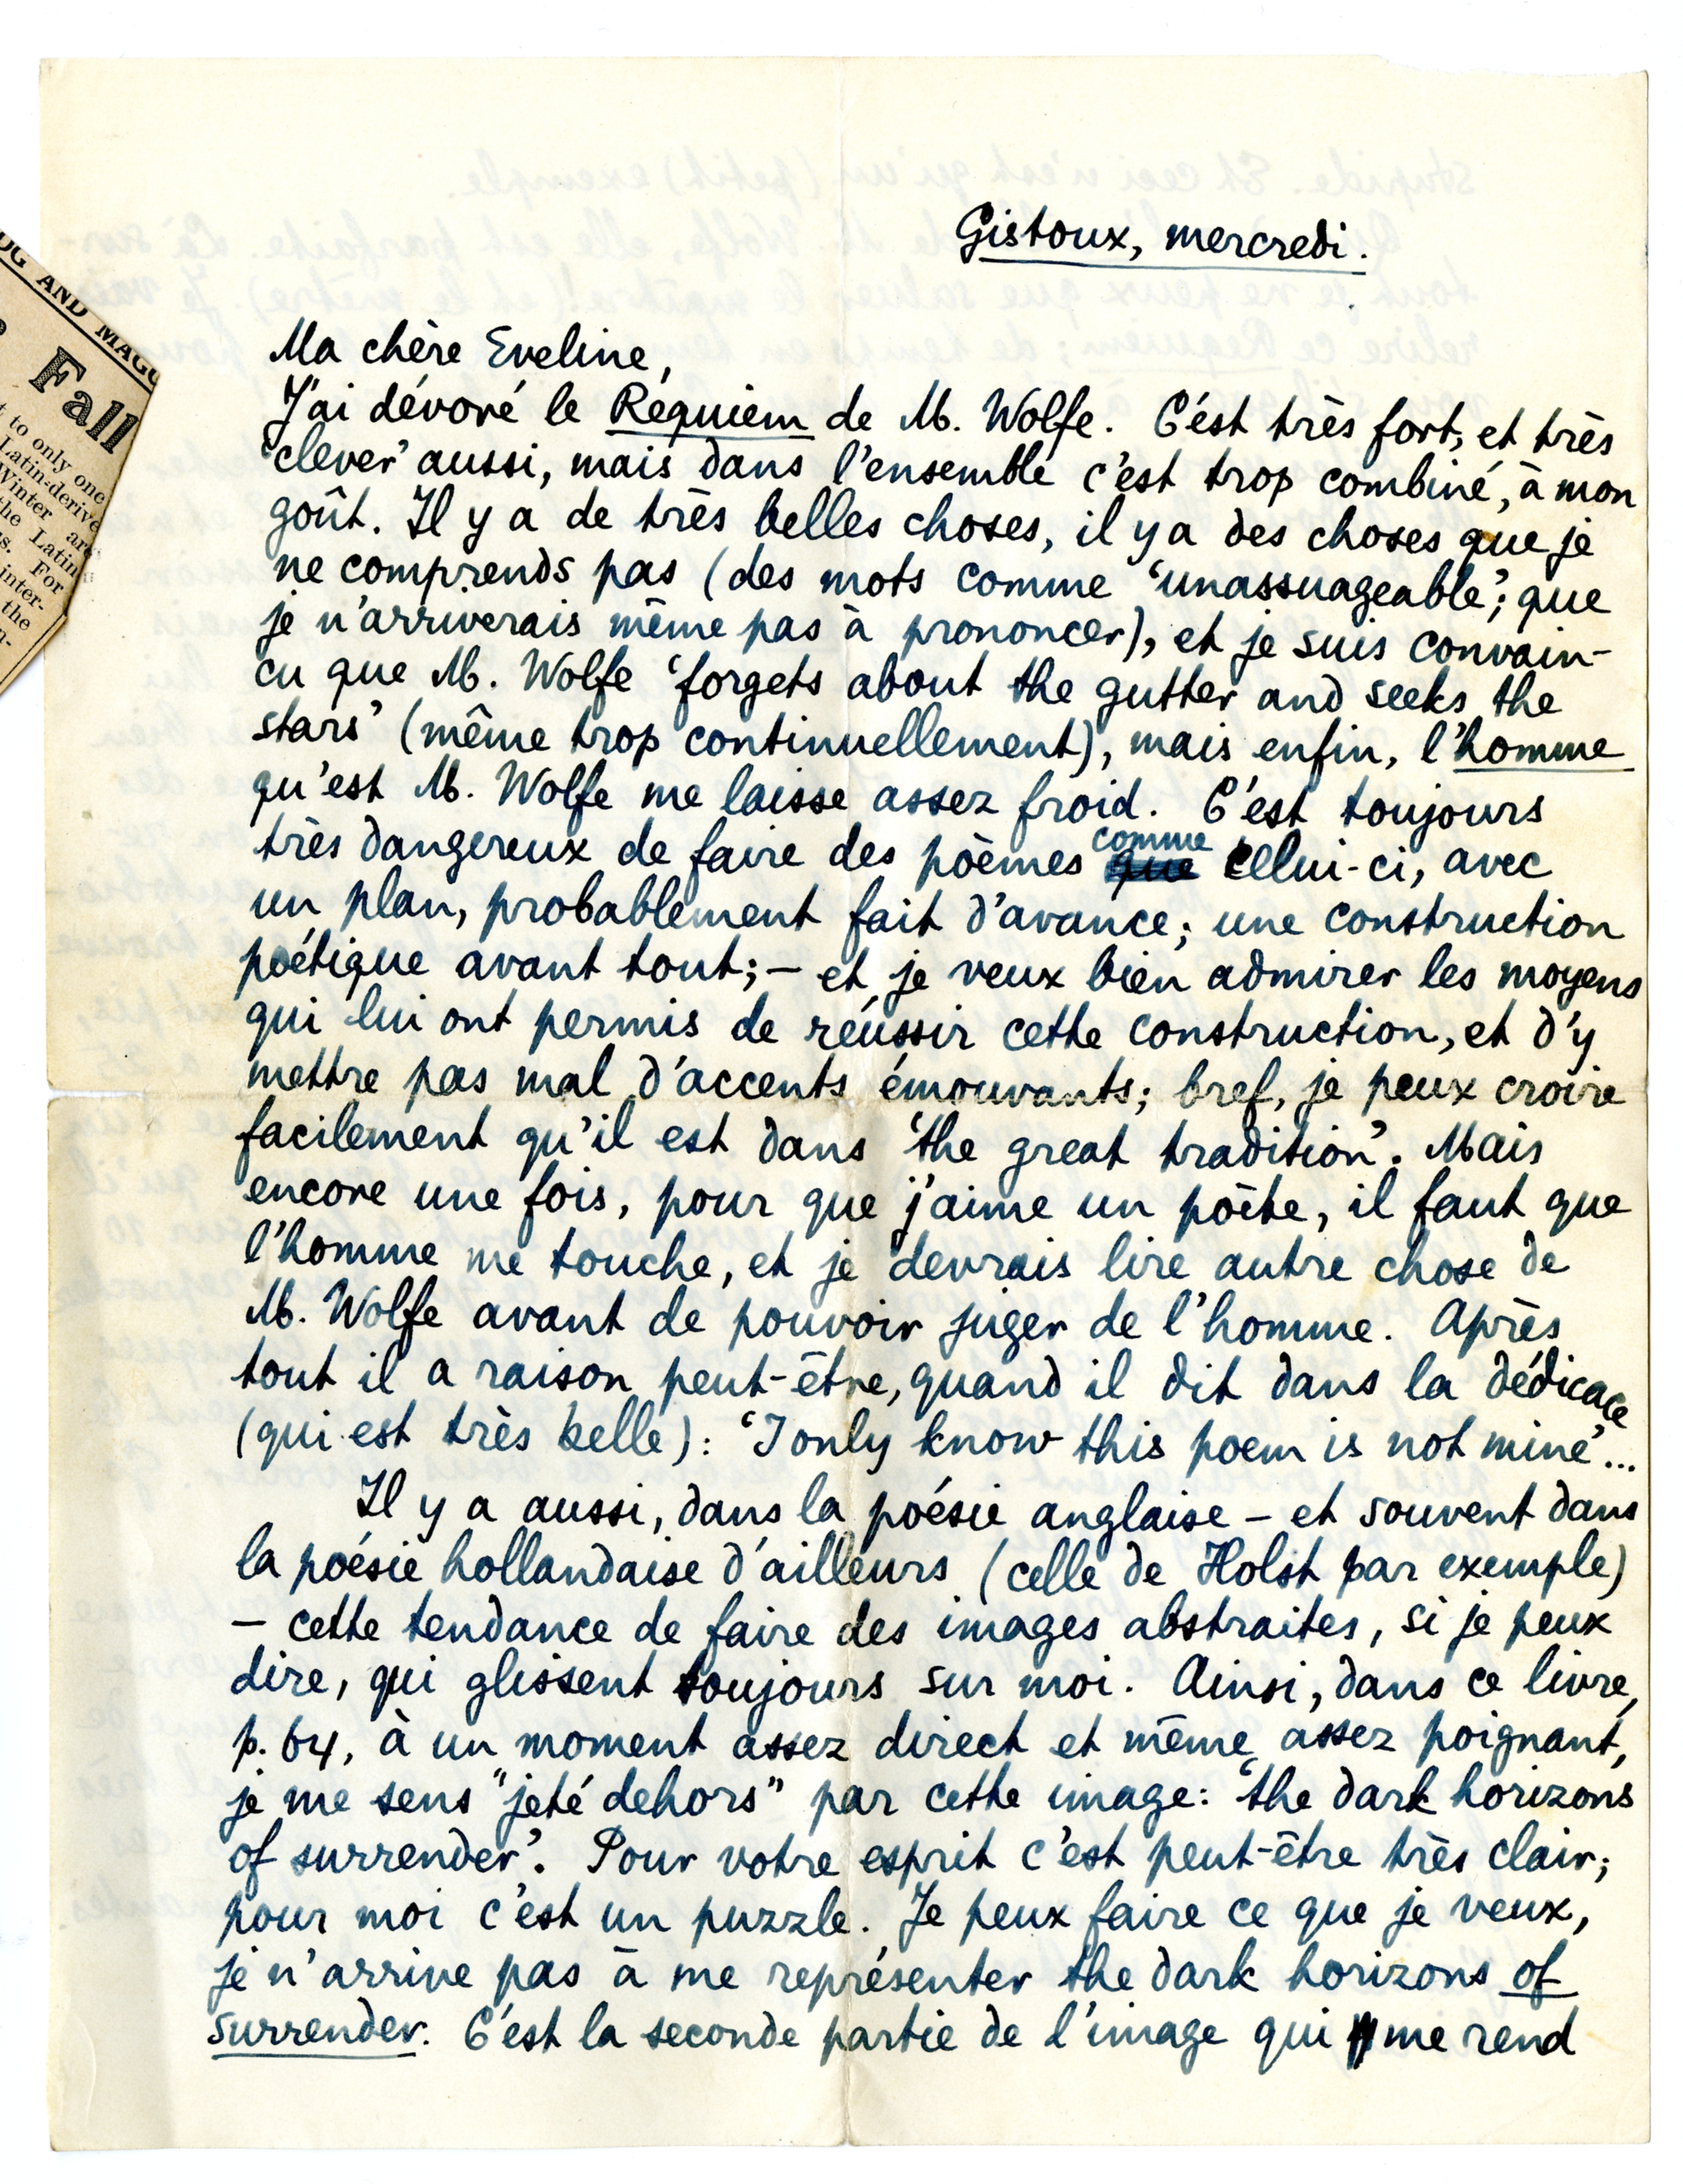 Gistoux, mercredi.
Ma chère Eveline,
J'ai dévoré le Requiem de M. Wolfe. C'est très fort, et très
'clever' aussi, mais dans l'ensemble c'est trop combiné, à mon
goût. Il y a de très belles choses, il y a des choses que je
ne comprends pas (des mots comme 'unassuageable', que
je n'arriverais même pas à prononcer), et je suis convain-
cu que M. Wolfe 'forgets about the gutter and seeks the
stars' (même trop continuellement), mais enfin, l'homme
qu'est M. Wolfe me laisse assez froid. C'est toujours
très dangereux de faire des poèmes comme celui-ci, avec
un plan, probablement fait d'avance; une construction
poétique avant tout; – et je veux bien admirer les moyens
qui lui ont permis de réussir cette construction, et d'y
mettre pas mal d'accents émouvants; bref, je peux croire
facilement qu'il est dans 'the great tradition'. Mais
encore une fois, pour que j'aime un poète, il faut que
l'homme me touche, et je devrais lire autre chose de
M. Wolfe avant de pouvoir juger de l'homme. Après
tout il a raison peut-être, quand il dit dans la dédicace
(qui est très belle): 'I only know this poem is not mine'...
Il y a aussi, dans la poésie anglaise – et souvent dans
la poésie hollandaise d'ailleurs (celle de Holst par exemple)
– cette tendance de faire des images abstraites, si je peux
dire, qui glissent toujours sur moi. Ainsi, dans ce livre,
p. 64, à un moment assez direct et même assez poignant,
je me sens "jeté dehors" par cette image: 'the dark horizons
of surrender'. Pour votre esprit c'est peut-être très clair;
pour moi c'est un puzzle. Je peux faire ce que je veux,
je n'arrive pas à me représenter the dark horizons of
surrender. C'est la seconde partie de l'image qui me rend
AND
Fall
to only one
Latin-derive
Winter are
the Latin
For
inter-
the